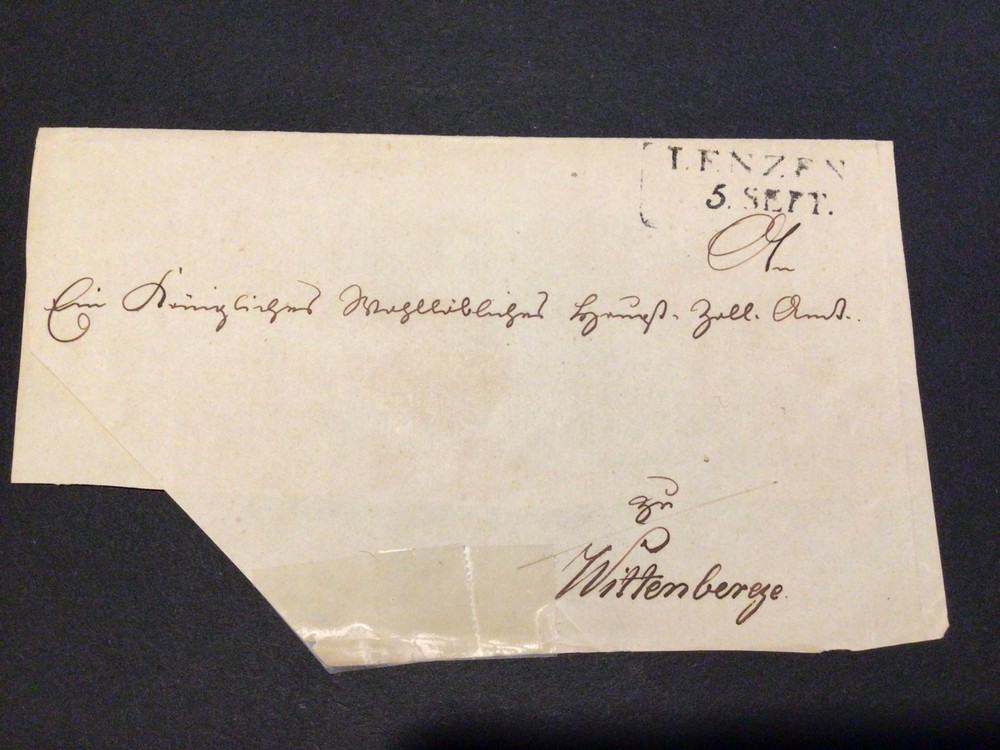 LENZEN
5. SEPT.
An
Ein Königliches Wohllöbliches Haupt-Zoll-Amt.
zu
Wittenberge.